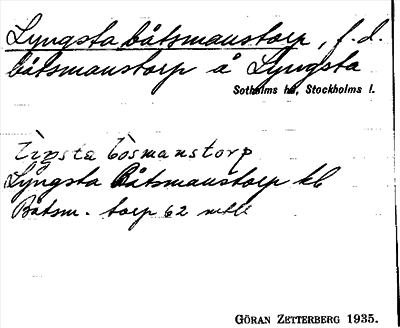 Lyngsta båtsmanstorp, f.d.
båtsmanstorp å Lyngsta
Sotholms hd, Stockholms l.
Lyngsta Båtsmanstorp kb
Båtsm. torp 62 mtll
GÖRAN ZETTERBERG 1935.